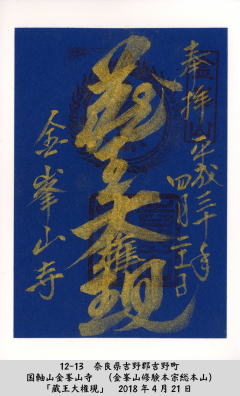 奉拝
平成三十年
四月二十一日
蔵王大権現
金峯山寺
12-13 奈良県吉野郡吉野町
国軸山金峯山寺 (金峯山修験本宗総本山)
「蔵王大権現」 2018年4月21日